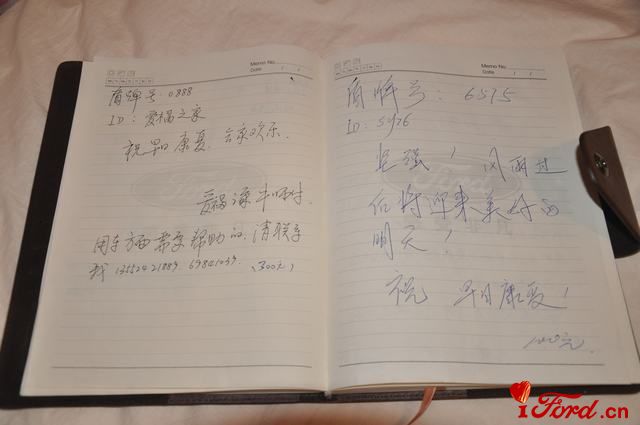 Memo No.
Date
盾牌号: 0888
ID: 爱福之家
祝早日康复. 合家欢乐.
用车方面需要帮助的,请联系
我 13552421889. 69841039. (300元)
Memo No.
Date
盾牌号: 6575
ID: 5976
坚强! 风雨过
后将迎来美好的
明天!
祝 早日康复!
Ford
iFord.cn